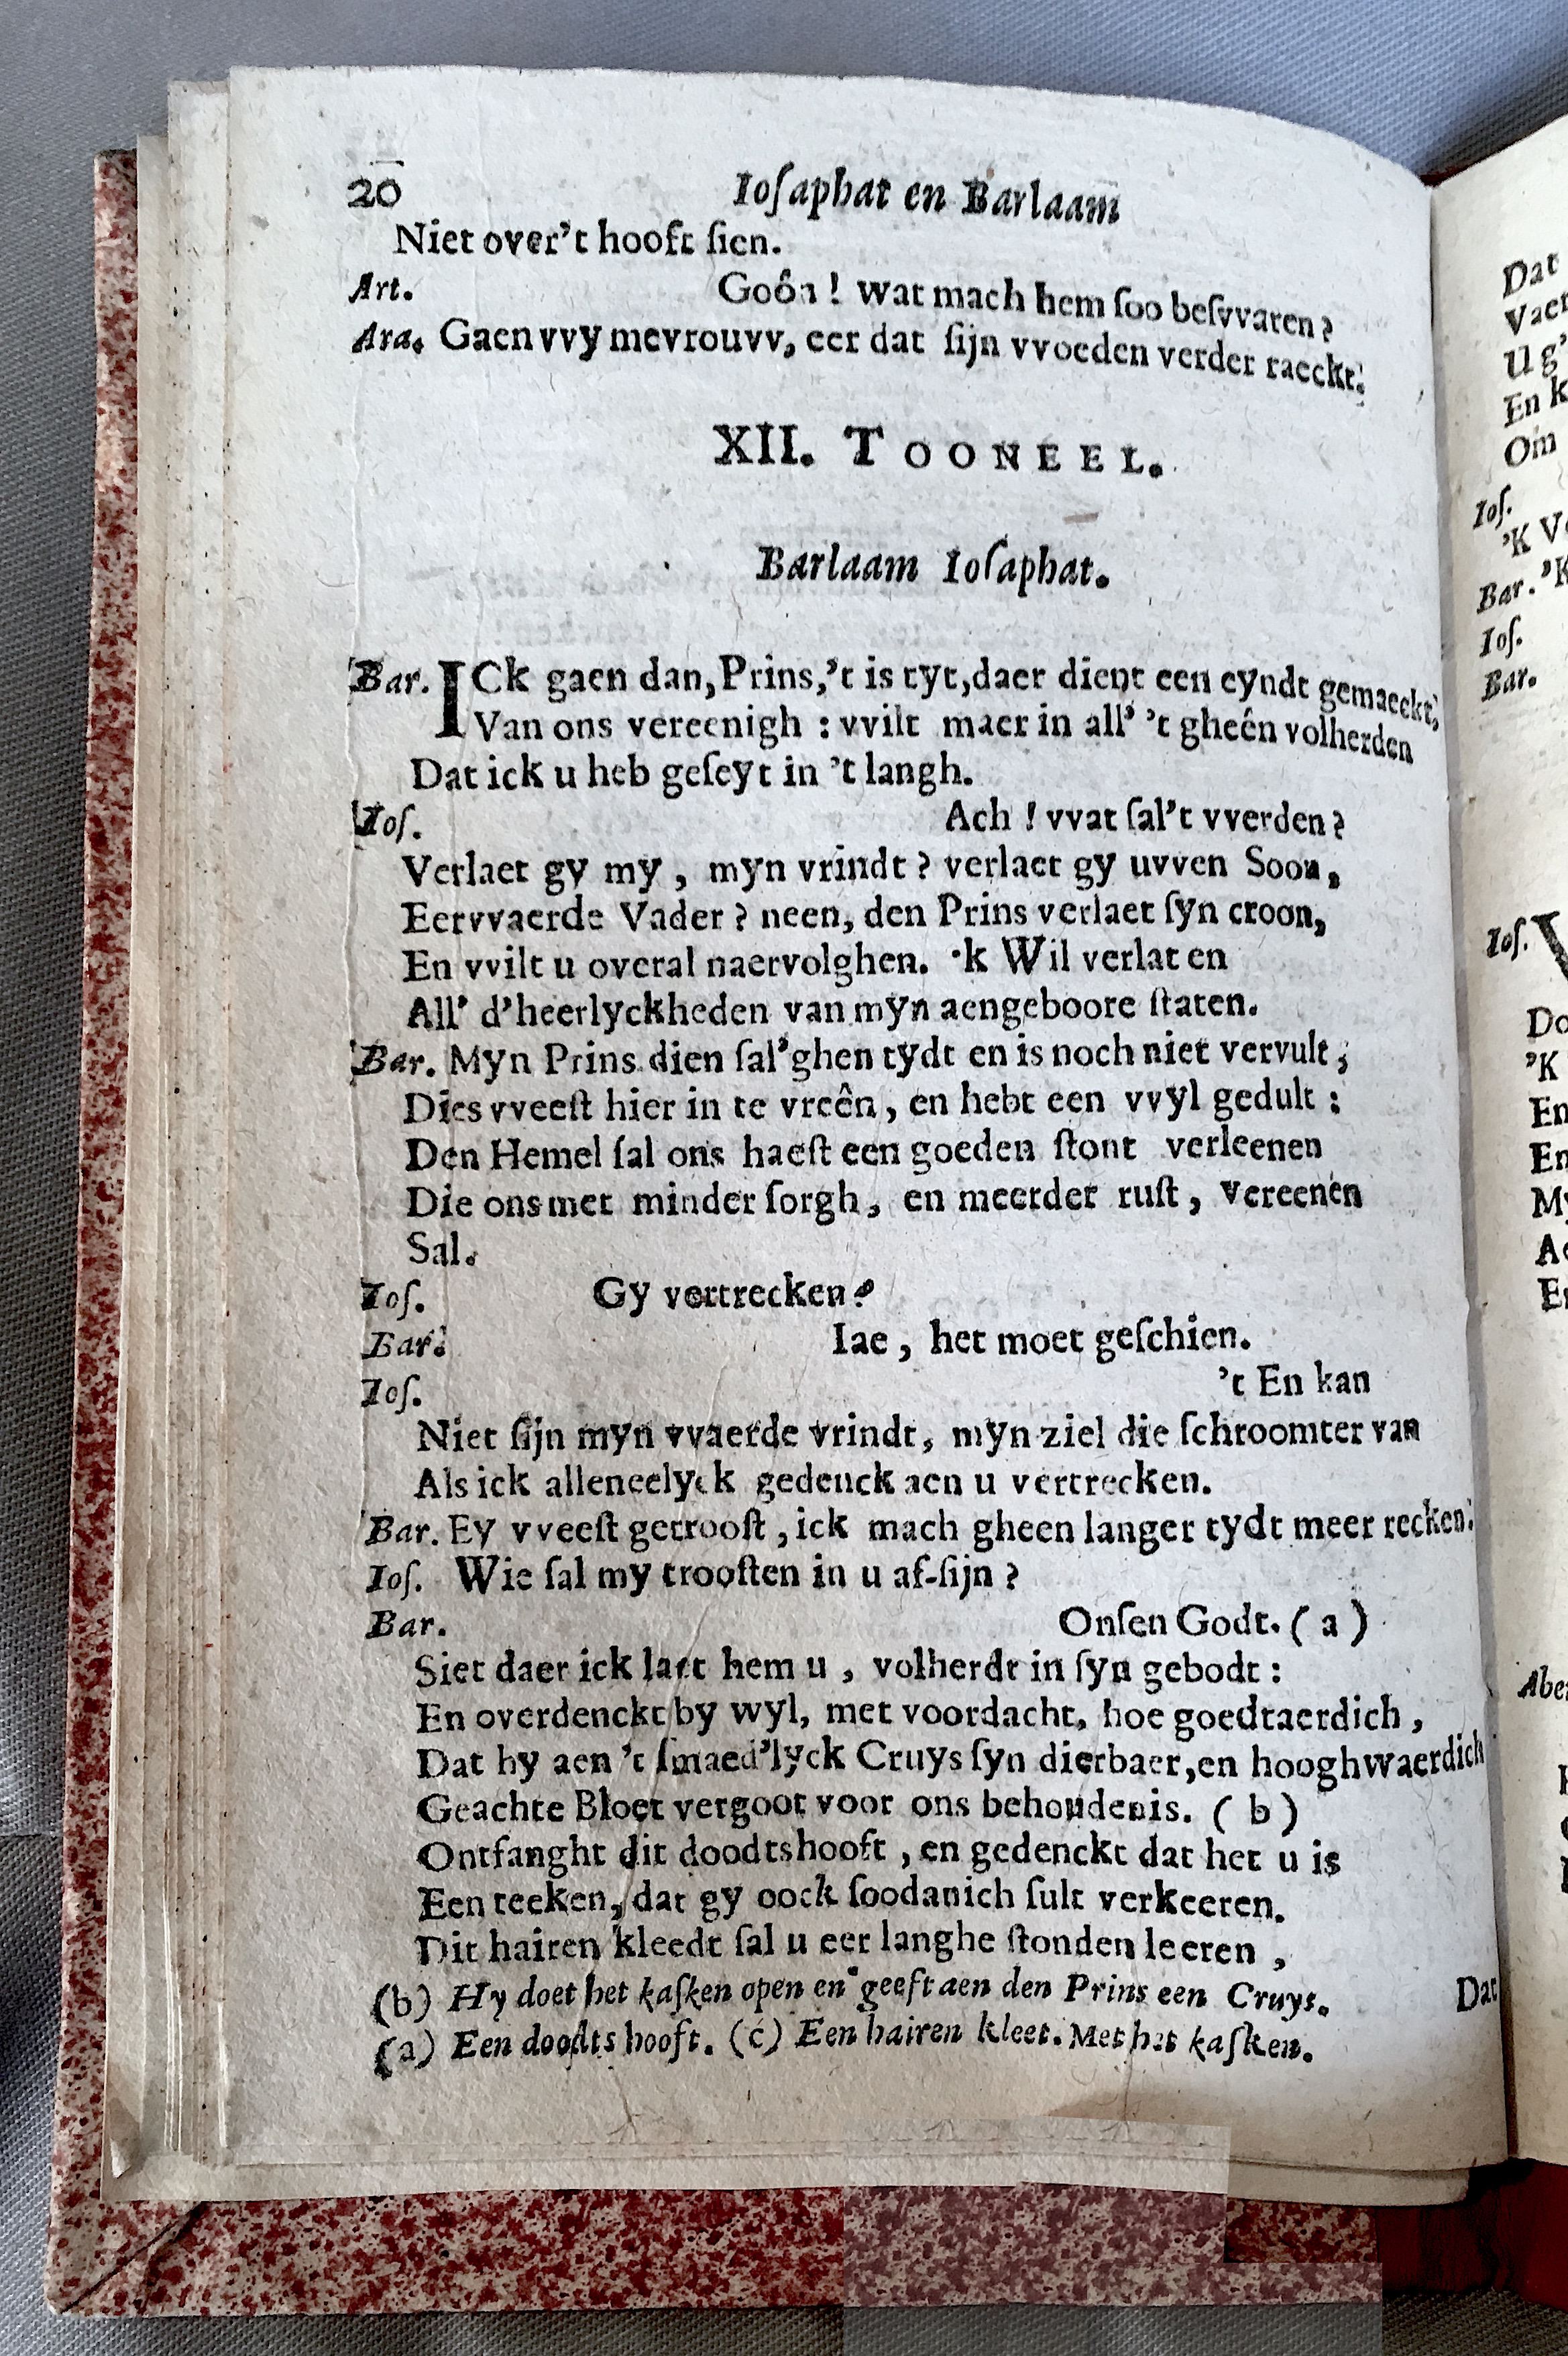 20 Ioſaphat en Barlaam
Niet over't hooft ſien.
Art. Goôn! wat mach hem ſoo beſvvaren?
Ara. Gaen vvy mevrouvv, eer dat ſijn vvoeden verder raeckt.
XII. TOONEEL.
Barlaam Ioſaphat.
Bar. ICk gaen dan, Prins,'t is tyt, daer dient een eyndt gemaeckt,
Van ons vereenigh : vvilt maer in all' 't gheên volherden
Dat ick u heb geſeyt in 't langh.
Ioſ. Ach ! vvat ſal't vverden?
Verlaet gy my , myn vrindt ? verlaet gy uvven Soon,
Eervvaerde Vader ? neen, den Prins verlaet ſyn croon,
En vvilt u overal naervolghen. 'k Wil verlat en
All' d'heerlyckheden van myn aengeboore ſtaten.
Bar. Myn Prins dien ſal'ghen tydt en is noch niet vervult ;
Dies vveeſt hier in te vreên, en hebt een vvyl gedult :
Den Hemel ſal ons haeſt een goeden ſtont verleenen
Die ons met minder ſorgh, en meerder ruſt, vereenen
Sal.
Ioſ. Gy vertrecken?
Bar. Iae , het moet geſchien.
Ioſ. 't En kan
Niet ſijn myn vvaerde vrindt, myn ziel die ſchroomter van
Als ick alleneelyck gedenck aen u vertrecken.
Bar. Ey vveeſt getrooſt , ick mach gheen langer tydt meer recken.
Ioſ. Wie ſal my trooſten in u af-ſijn ?
Bar. Onſen Godt. ( a )
Siet daer ick laet hem u , volherdt in ſyn gebodt :
En overdenckt by wyl, met voordacht, hoe goedtaerdich ,
Dat hy aen 't ſmaed'lyck Cruys ſyn dierbaer, en hooghwaerdich
Geachte Bloet vergoot voor ons behoudenis. ( b )
Ontfanght dit doodtshooft , en gedenckt dat het u is
Een teeken, dat gy oock ſoodanich ſult verkeeren.
Dit hairen kleedt ſal u eer langhe ſtonden leeren ,
(b) Hy doet het kaſken open en geeft aen den Prins een Cruys. Dat
(a) Een doodts hooft. (c) Een hairen kleet. Met het kaſken.
Dat
Vaer
U g'
En k
Om
Ioſ.
'K V
Bar. 'K
Ioſ.
Bar.
Ioſ. V
Do
'K
En
En
My